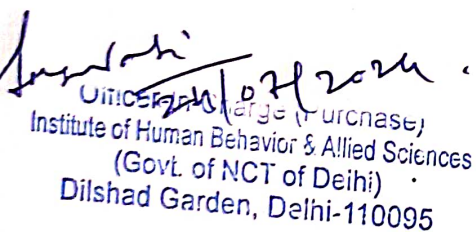 24/07/2024.
Officer-In-Charge (Purchase)
Institute of Human Behavior & Allied Sciences
(Govt. of NCT of Delhi)
Dilshad Garden, Delhi-110095